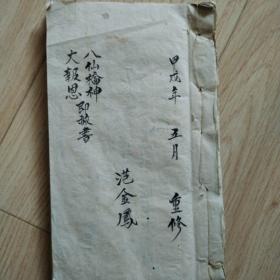 甲戌年 五月 重修
范金鳳
八仙神
大報恩即赦書